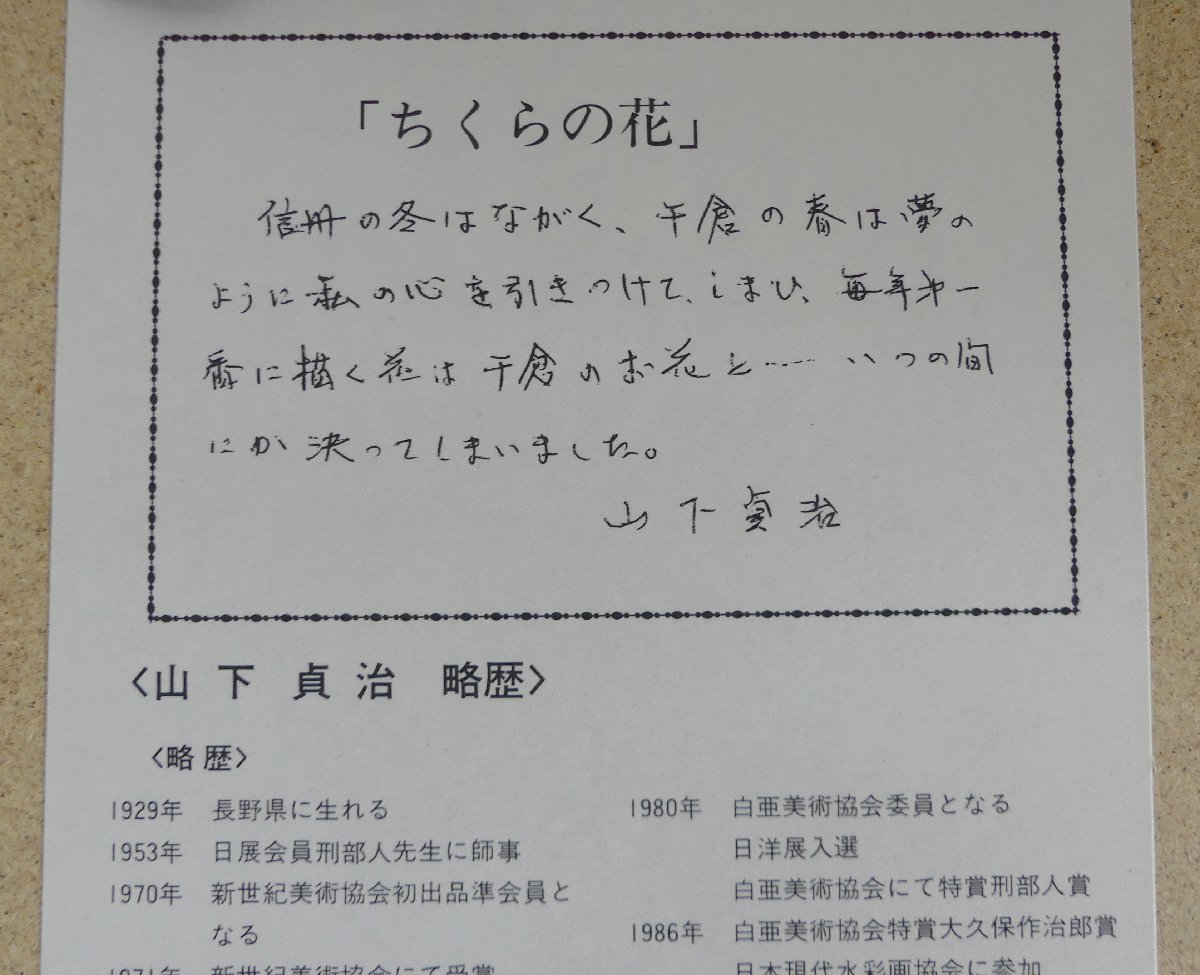 「ちくらの花」
信州の冬はながく、千倉の春は夢の
ように私の心を引きつけて、しまひ、毎年第一
番に描く花は千倉のお花と……いつの間
にか決ってしまいました。
山下貞治
〈山下貞治 略歴〉
〈略歴〉
1929年 長野県に生れる
1953年 日展会員刑部人先生に師事
1970年 新世紀美術協会初出品準会員と
なる
1971年 新世紀美術協会にて受賞
1980年 白亜美術協会委員となる
日洋展入選
白亜美術協会にて特賞刑部人賞
1986年 白亜美術協会特賞大久保作治郎賞
日本現代水彩画協会に参加